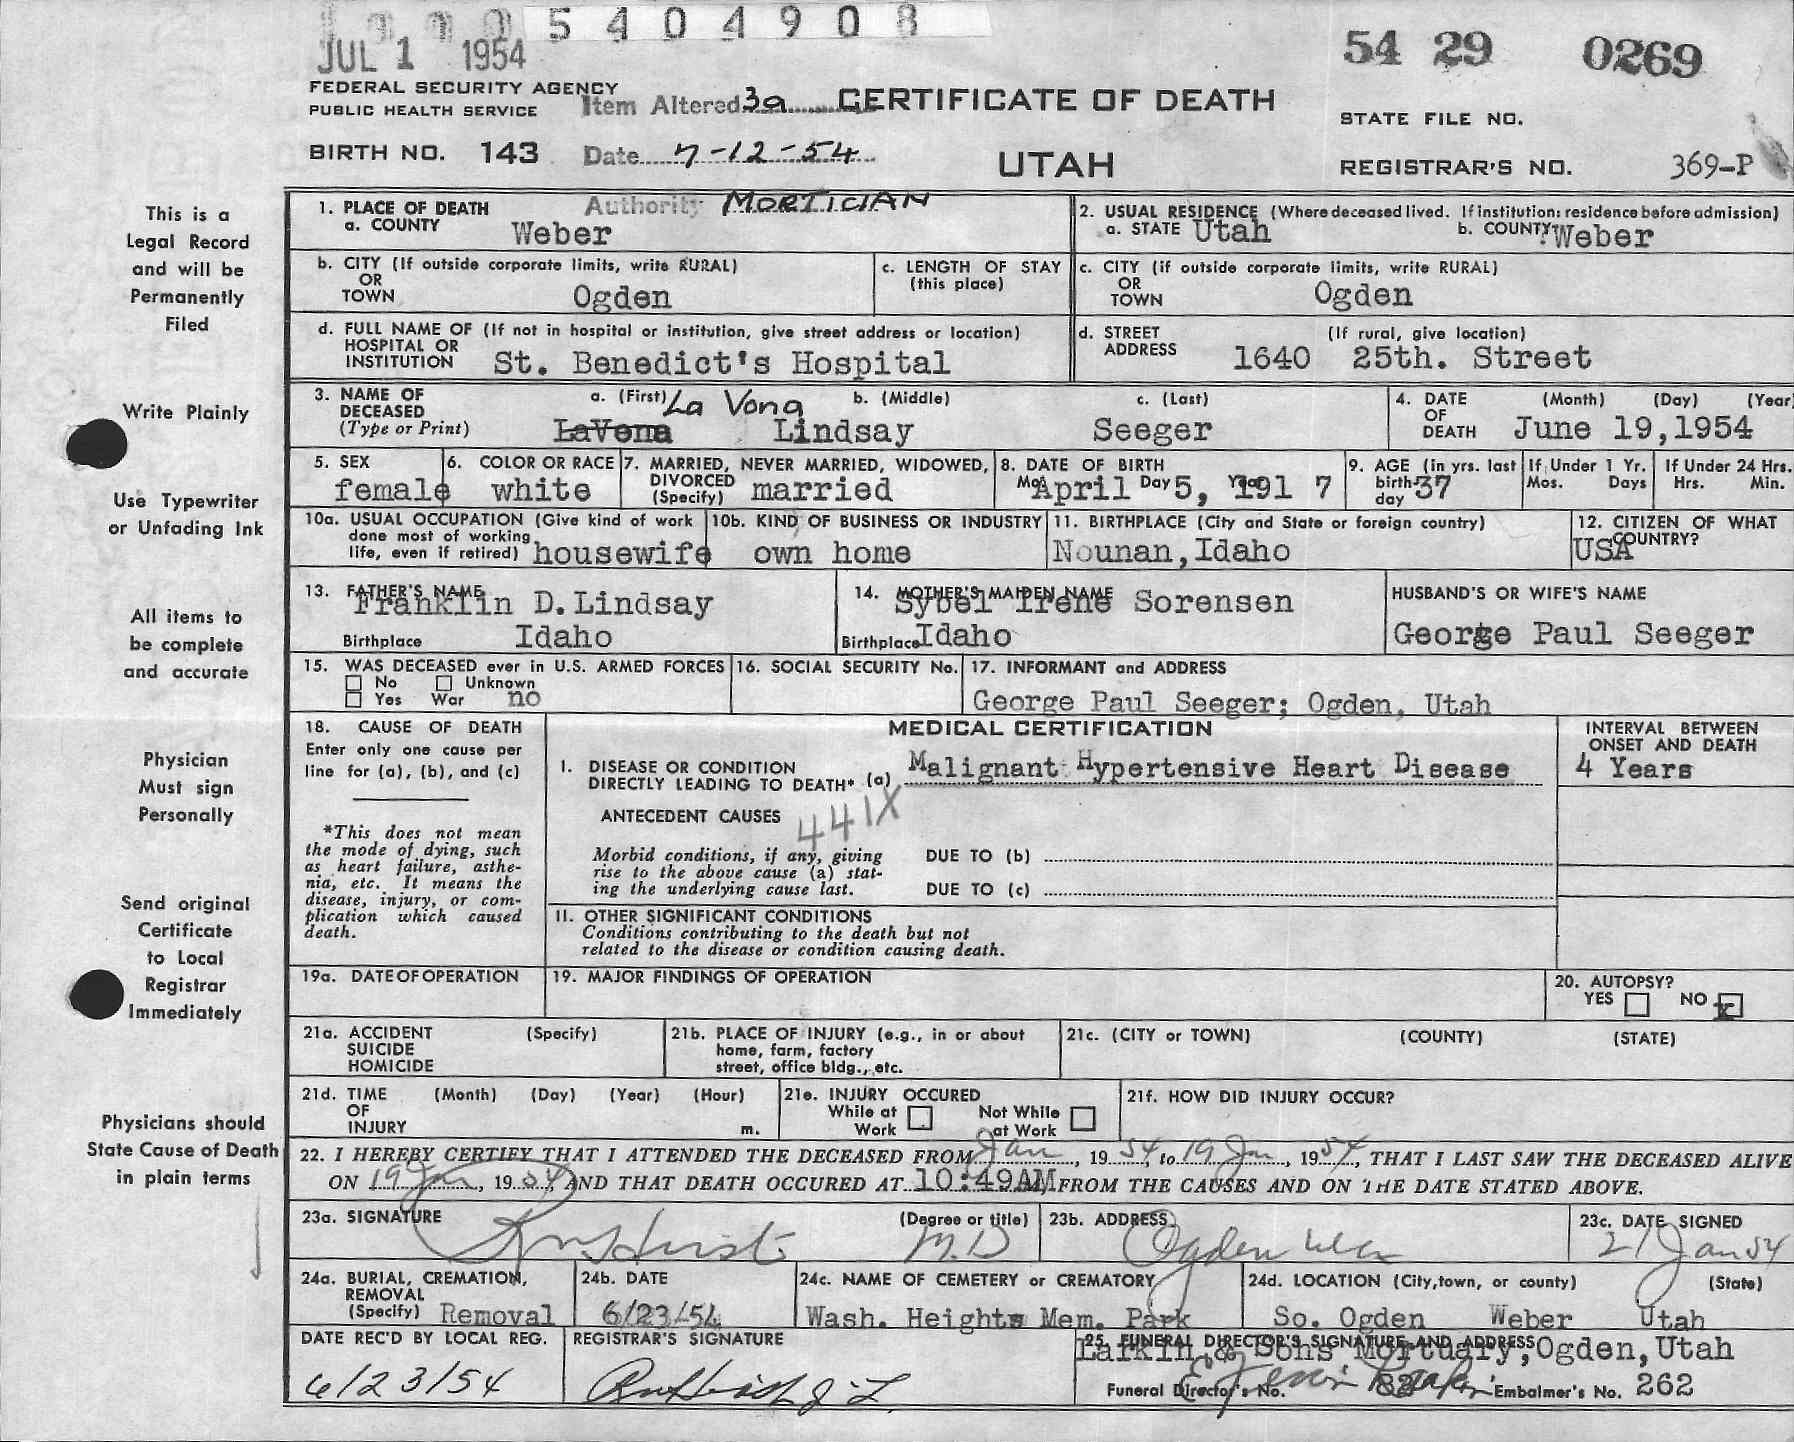 5 4 0 4 9 0 8
JUL 1 1954
54 29 0269
FEDERAL SECURITY AGENCY
PUBLIC HEALTH SERVICE
Item Altered 3a
CERTIFICATE OF DEATH
STATE FILE NO.
BIRTH NO. 143
Date 7-12-54
UTAH
REGISTRAR'S NO. 369-P
Authority MORTICIAN
This is a
Legal Record
and will be
Permanently
Filed
Write Plainly
Use Typewriter
or Unfading Ink
All items to
be complete
and accurate
Physician
Must sign
Personally
Send original
Certificate
to Local
Registrar
Immediately
Physicians should
State Cause of Death
in plain terms
1. PLACE OF DEATH
a. COUNTY Weber
2. USUAL RESIDENCE (Where deceased lived. If institution: residence before admission)
a. STATE Utah b. COUNTY Weber
b. CITY (If outside corporate limits, write RURAL)
OR
TOWN Ogden
c. LENGTH OF STAY
(this place)
c. CITY (if outside corporate limits, write RURAL)
OR
TOWN Ogden
d. FULL NAME OF (If not in hospital or institution, give street address or location)
HOSPITAL OR
INSTITUTION St. Benedict's Hospital
d. STREET (If rural, give location)
ADDRESS 1640 25th. Street
3. NAME OF
DECEASED
(Type or Print)
a. (First) La Vona b. (Middle) c. (Last)
LaVona Lindsay Seeger
4. DATE (Month) (Day) (Year)
OF
DEATH June 19,1954
5. SEX
female
6. COLOR OR RACE
white
7. MARRIED, NEVER MARRIED, WIDOWED,
DIVORCED
(Specify) married
8. DATE OF BIRTH
Mo. April Day 5, 191 7
9. AGE (in yrs. last
birth-
day 37
If Under 1 Yr.
Mos. Days
If Under 24 Hrs.
Hrs. Min.
10a. USUAL OCCUPATION (Give kind of work
done most of working
life, even if retired) housewife
10b. KIND OF BUSINESS OR INDUSTRY
own home
11. BIRTHPLACE (City and State or foreign country)
Nounan,Idaho
12. CITIZEN OF WHAT
COUNTRY?
USA
13. FATHER'S NAME
Franklin D.Lindsay
Birthplace Idaho
14. MOTHER'S MAIDEN NAME
Sybel Irene Sorensen
Birthplace Idaho
HUSBAND'S OR WIFE'S NAME
George Paul Seeger
15. WAS DECEASED ever in U.S. ARMED FORCES
No Unknown
Yes War no
16. SOCIAL SECURITY No.
17. INFORMANT and ADDRESS
George Paul Seeger; Ogden, Utah
18. CAUSE OF DEATH
Enter only one cause per
line for (a), (b), and (c)
*This does not mean
the mode of dying, such
as heart failure, asthe-
nia, etc. It means the
disease, injury, or com-
plication which caused
death.
MEDICAL CERTIFICATION
I. DISEASE OR CONDITION
DIRECTLY LEADING TO DEATH* (a) Malignant Hypertensive Heart Disease
INTERVAL BETWEEN
ONSET AND DEATH
4 Years
ANTECEDENT CAUSES 441X
Morbid conditions, if any, giving
rise to the above cause (a) stat-
ing the underlying cause last.
DUE TO (b)
DUE TO (c)
II. OTHER SIGNIFICANT CONDITIONS
Conditions contributing to the death but not
related to the disease or condition causing death.
19a. DATE OF OPERATION
19. MAJOR FINDINGS OF OPERATION
20. AUTOPSY?
YES NO x
21a. ACCIDENT (Specify)
SUICIDE
HOMICIDE
21b. PLACE OF INJURY (e.g., in or about
home, farm, factory
street, office bldg., etc.
21c. (CITY or TOWN) (COUNTY) (STATE)
21d. TIME (Month) (Day) (Year) (Hour)
OF
INJURY m.
21e. INJURY OCCURED
While at Work
Not While at Work
21f. HOW DID INJURY OCCUR?
22. I HEREBY CERTIFY THAT I ATTENDED THE DECEASED FROM Jan, 19 54, to 19 Jun, 1954, THAT I LAST SAW THE DECEASED ALIVE
ON 19 Jun, 19 54, AND THAT DEATH OCCURED AT 10:49AM, FROM THE CAUSES AND ON THE DATE STATED ABOVE.
23a. SIGNATURE (Degree or title)
M.D
23b. ADDRESS
Ogden Utah
23c. DATE SIGNED
21 Jun 54
24a. BURIAL, CREMATION,
REMOVAL
(Specify) Removal
24b. DATE
6/23/54
24c. NAME OF CEMETERY or CREMATORY
Wash. Heights Mem. Park
24d. LOCATION (City,town, or county) (State)
So. Ogden Weber Utah
DATE REC'D BY LOCAL REG.
6/23/54
REGISTRAR'S SIGNATURE
25. FUNERAL DIRECTOR'S SIGNATURE AND ADDRESS
Larkin & Sons Mortuary,Ogden,Utah
Funeral Director's No. Embalmer's No. 262